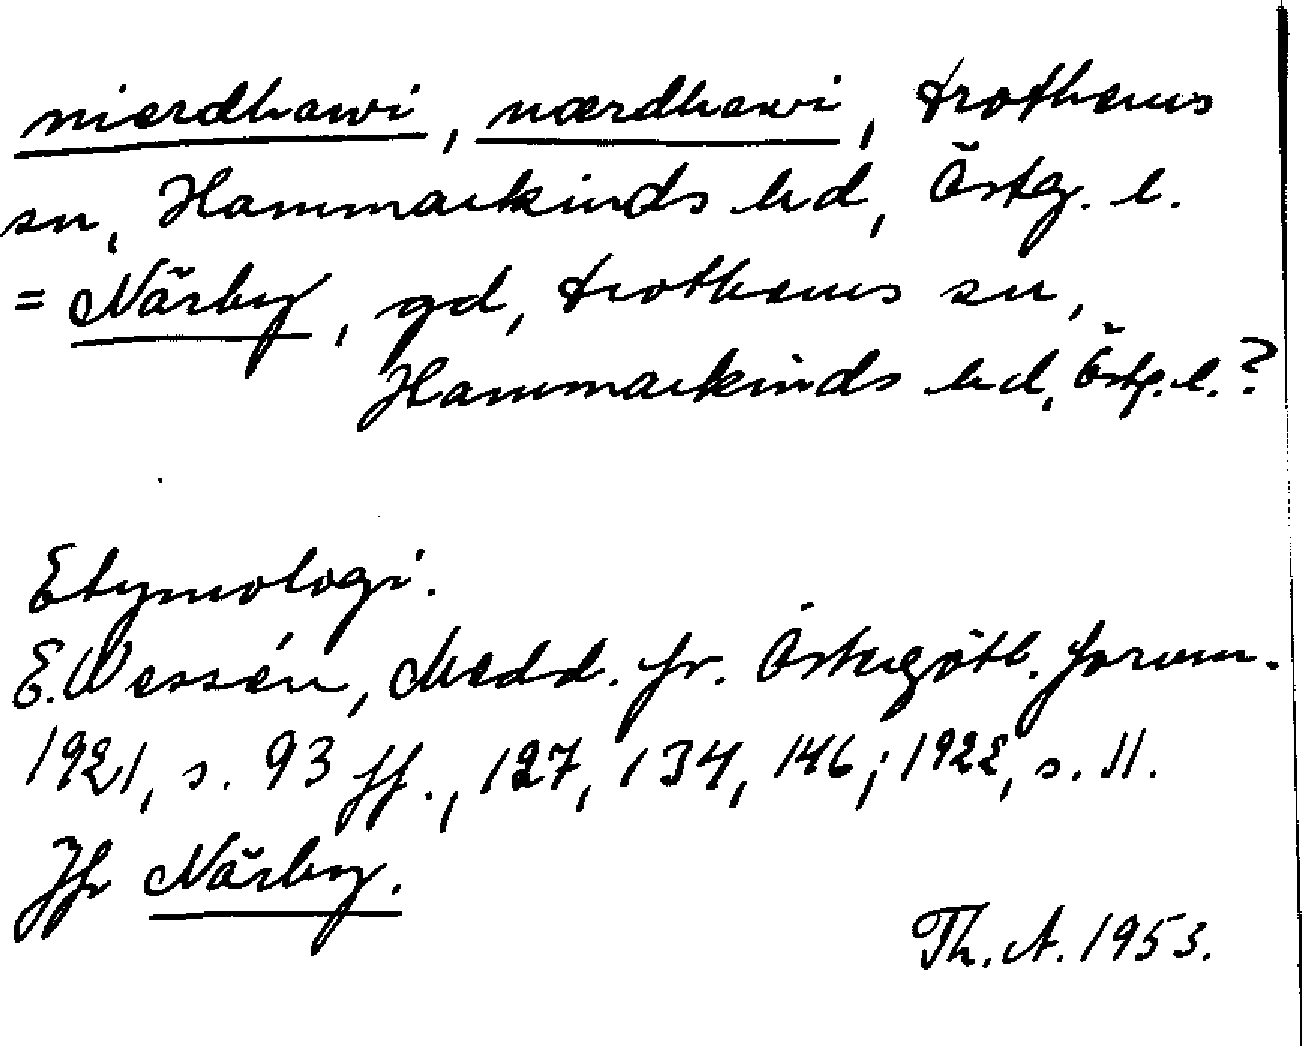 niærdhæwi, nærdhæwi, Drothems
sn, Hammarkinds hd, Östg. l.
= Närby, gd, Drothems sn,
Hammarkinds hd, Östg. l.?
Etymologi.
E. Wessén, Medd. fr. Östergötl. fornm.
1921, s. 93 ff., 127, 134, 146; 1922, s. 11.
Jfr Närby.
Th. A. 1953.